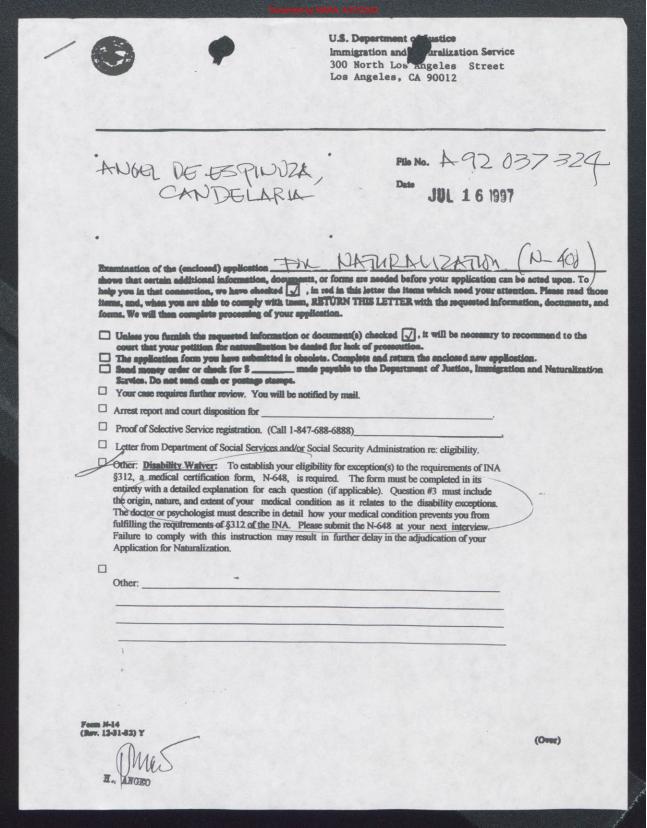 U.S. Department of Justice
Immigration and Naturalization Service
300 North Los Angeles Street
Los Angeles, CA 90012
ANGEL DE ESPINOZA,
CANDELARIA
File No. A92 037 324
Date JUL 16 1997
Examination of the (enclosed) application FOR NATURALIZATION (N-400)
shows that certain additional information, documents, or forms are needed before your application can be acted upon. To
help you in that connection, we have checked ☑, in red in this letter the items which need your attention. Please read those
items, and, when you are able to comply with them, RETURN THIS LETTER with the requested information, documents, and
forms. We will then complete processing of your application.
☐ Unless you furnish the requested information or document(s) checked ☑, it will be necessary to recommend to the
court that your petition for naturalization be denied for lack of prosecution.
☐ The application form you have submitted is obsolete. Complete and return the enclosed new application.
☐ Send money order or check for $ ________ made payable to the Department of Justice, Immigration and Naturalization
Service. Do not send cash or postage stamps.
☐ Your case requires further review. You will be notified by mail.
☐ Arrest report and court disposition for ________.
☐ Proof of Selective Service registration. (Call 1-847-688-6888)________.
☐ Letter from Department of Social Services and/or Social Security Administration re: eligibility.
☐ Other: Disability Waiver: To establish your eligibility for exception(s) to the requirements of INA
§312, a medical certification form, N-648, is required. The form must be completed in its
entirety with a detailed explanation for each question (if applicable). Question #3 must include
the origin, nature, and extent of your medical condition as it relates to the disability exceptions.
The doctor or psychologist must describe in detail how your medical condition prevents you from
fulfilling the requirements of §312 of the INA. Please submit the N-648 at your next interview.
Failure to comply with this instruction may result in further delay in the adjudication of your
Application for Naturalization.
☐
Other: ________
Form N-14
(Rev. 12-31-82) Y
(Over)
H. ANGEO